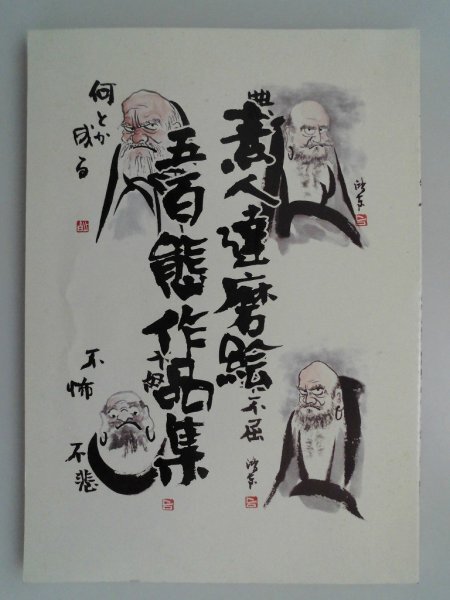 素人達磨絵
五百態作品集
何とか
成る
不屈
不怖
不悲